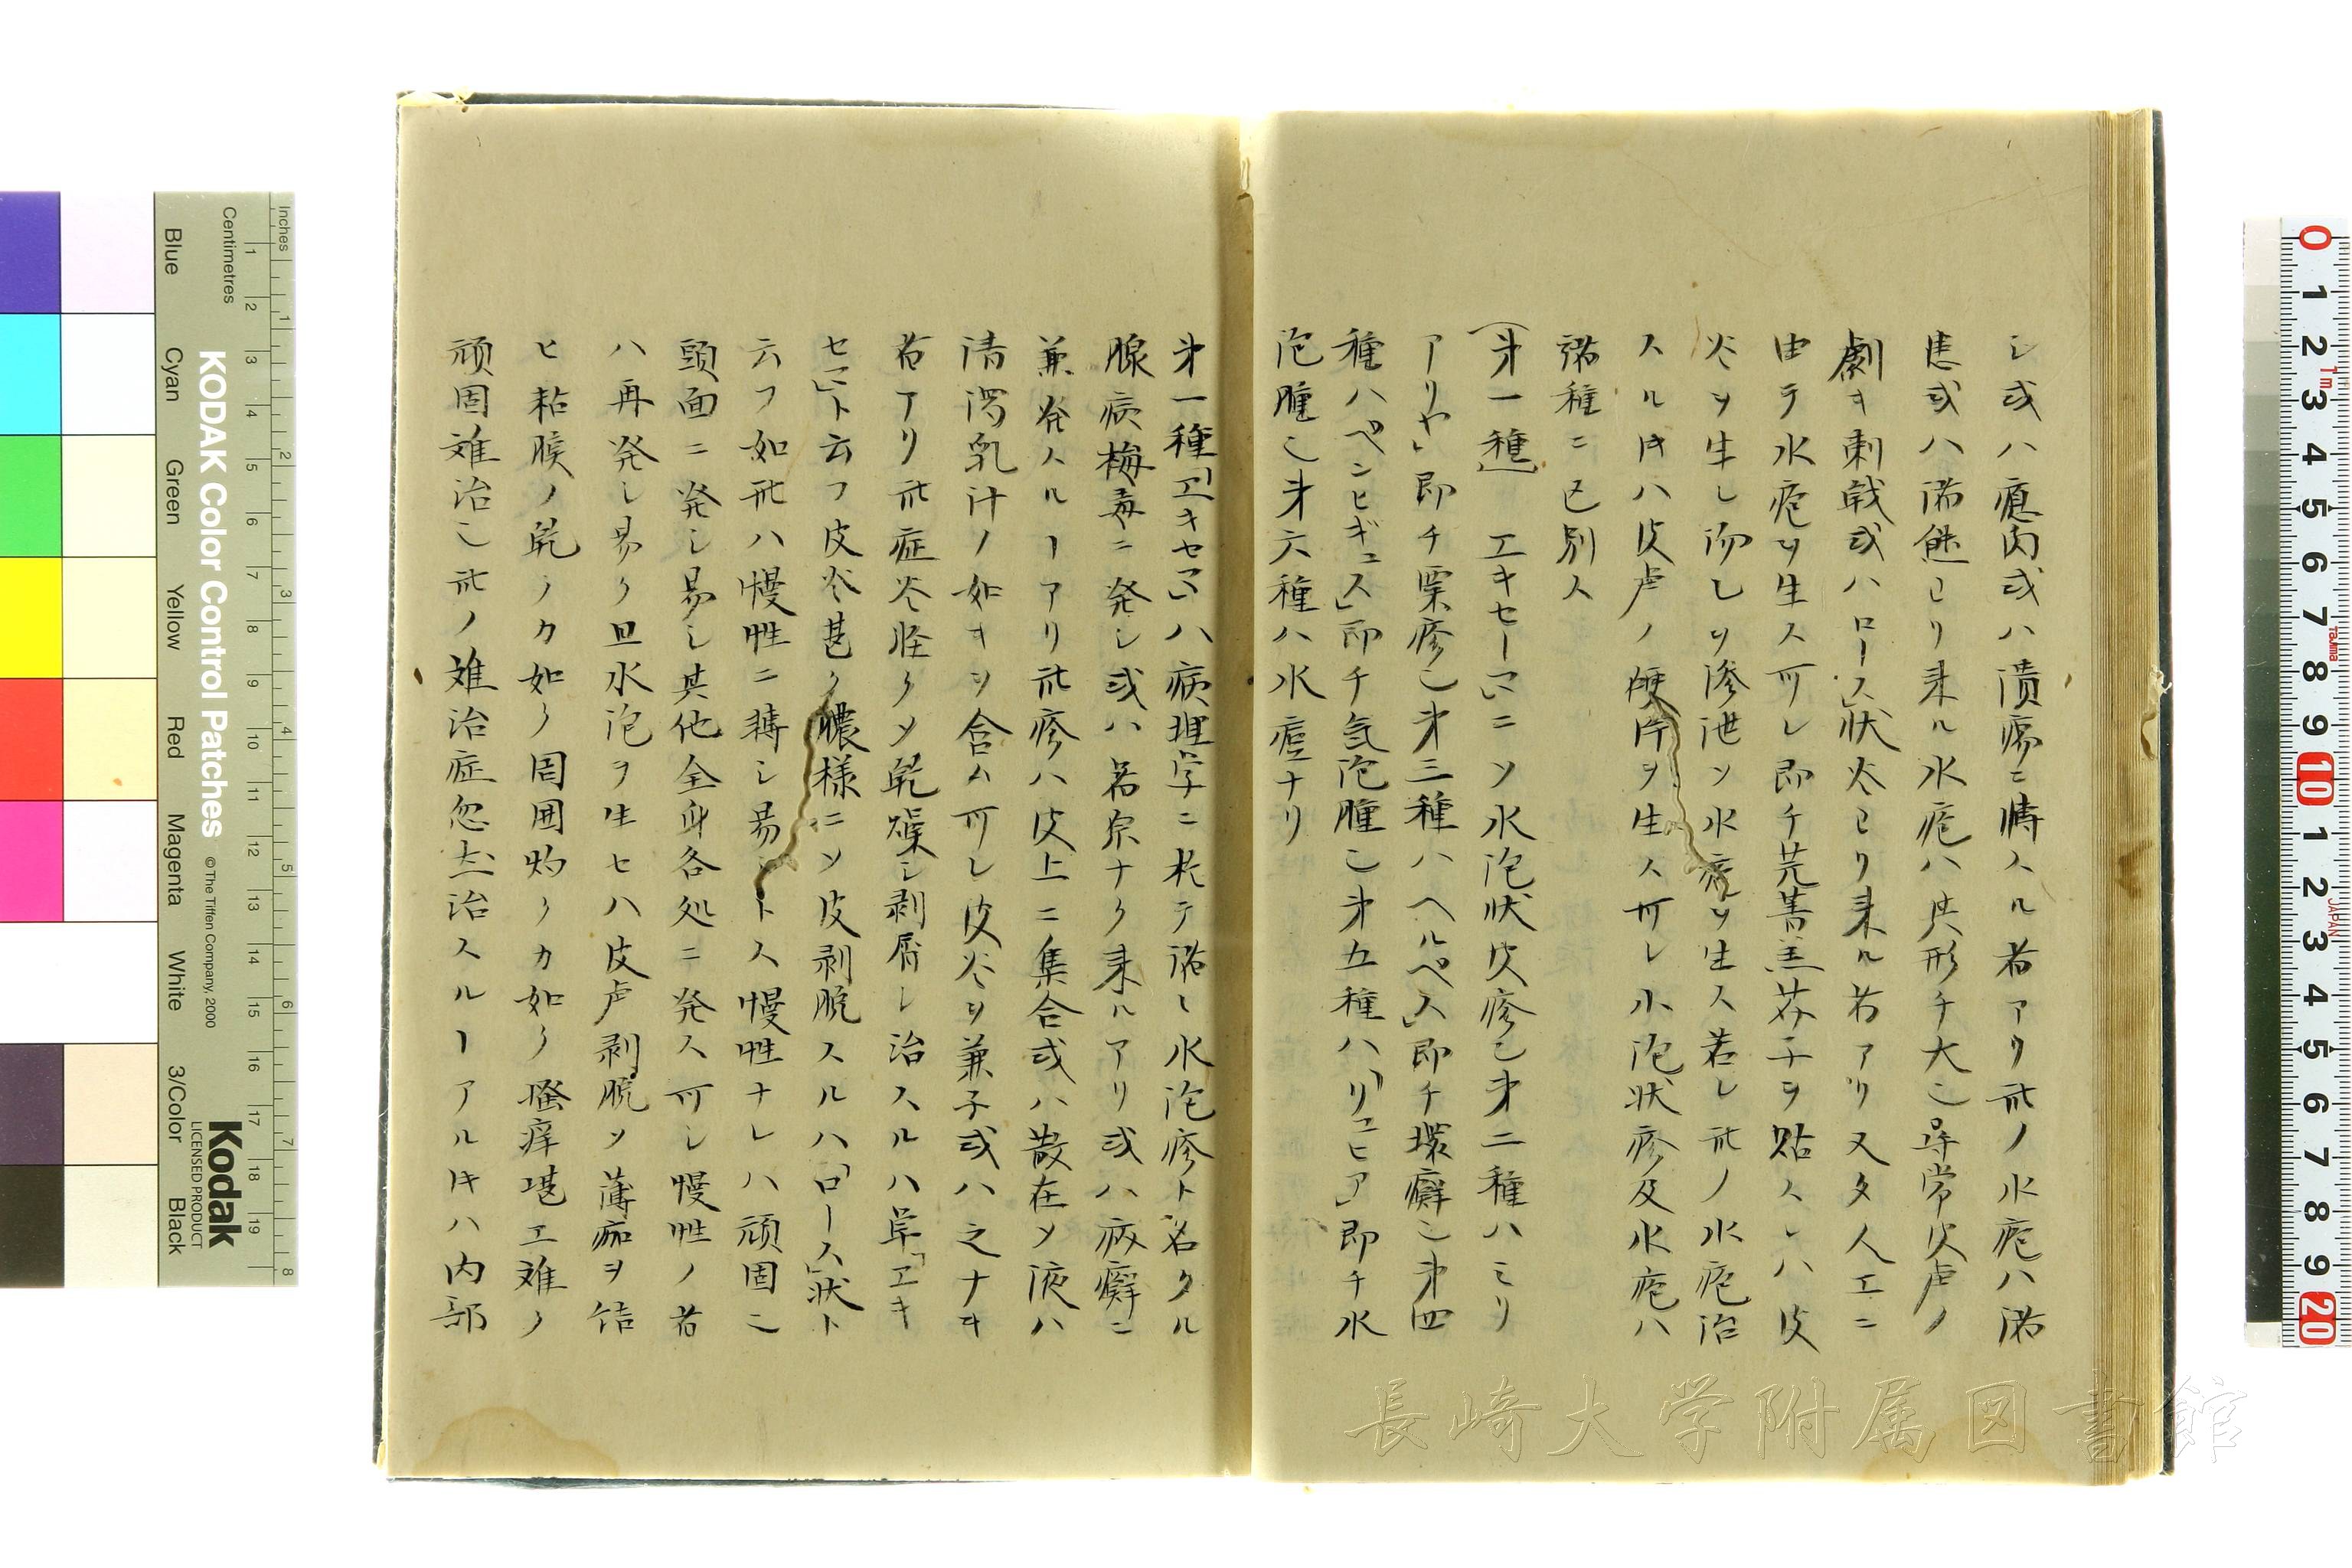 シ或ハ瘜肉或ハ潰瘍ニ轉スル者アリ此ノ水疱ハ滞
恚或ハ滞餘ヨリ来ル水疱ハ其形チ大ニ尋常皮膚ノ
劇キ刺戟或ハロース」状炎ヨリ来ル者アリ又タ人工ニ
由テ水疱ヲ生ス可レ即チ芫菁芥子ヲ貼スレハ皮
炎ヲ生シ沕乚ヲ滲泄ソ水疱ヲ生ス若レ此ノ水疱治
スル𪜈ハ皮膚ノ硬片ヲ生ス可レ小泡状疹及水疱ハ
諸種ニ己別ス
(第一種) エキセーマ」ニソ水泡状皮疹乚第二種ハミリ
アリヤ」即チ粟疹乚第三種ハヘルペス」即チ環癬乚第四
種ハペンヒギュス」即チ気泡腫乚第五種ハ「リュヒア」即チ水
泡腫乚第六種ハ水痘ナリ
第一種「エキセマ」ハ病理学ニ於テ諸乚水泡疹ト名クル
腺病梅毒ニ発シ或ハ畧原ナク来ルアリ或ハ疥癬ニ
兼発スルヿアリ此疹ハ皮上ニ集合或ハ散在ソ液ハ
清澄乳汁ノ如キソヲ含ム可レ皮炎ヲ兼子或ハ之ナキ
者アリ此症炎軽クソ乾燥シ剥屑シ治スルハ単「エキ
セマ」ト云フ皮炎甚ク膿様ニソ皮剥脱スルハ「ロース」状ト
云フ如此ハ慢性ニ轉シ易シトス慢性ナレハ頑固ニ
頭面ニ発シ易シ其他全身各処ニ発ス可シ慢性ノ者
ハ再発シ易ク且水泡ヲ生セハ皮膚剥脱ソ薄痂ヲ結
ヒ粘膜ノ乾クカ如ク周囲灼クカ如ク掻痒堪エ難ク
頑固難治乚此ノ難治症忽然治スルヿアル𪜈ハ内部
KODAK Color Control Patches
© The Tiffen Company, 2000
Kodak
LICENSED PRODUCT
Inches
Centimetres
Blue
Cyan
Green
Yellow
Red
Magenta
White
3/Color
Black
長崎大学附属図書館